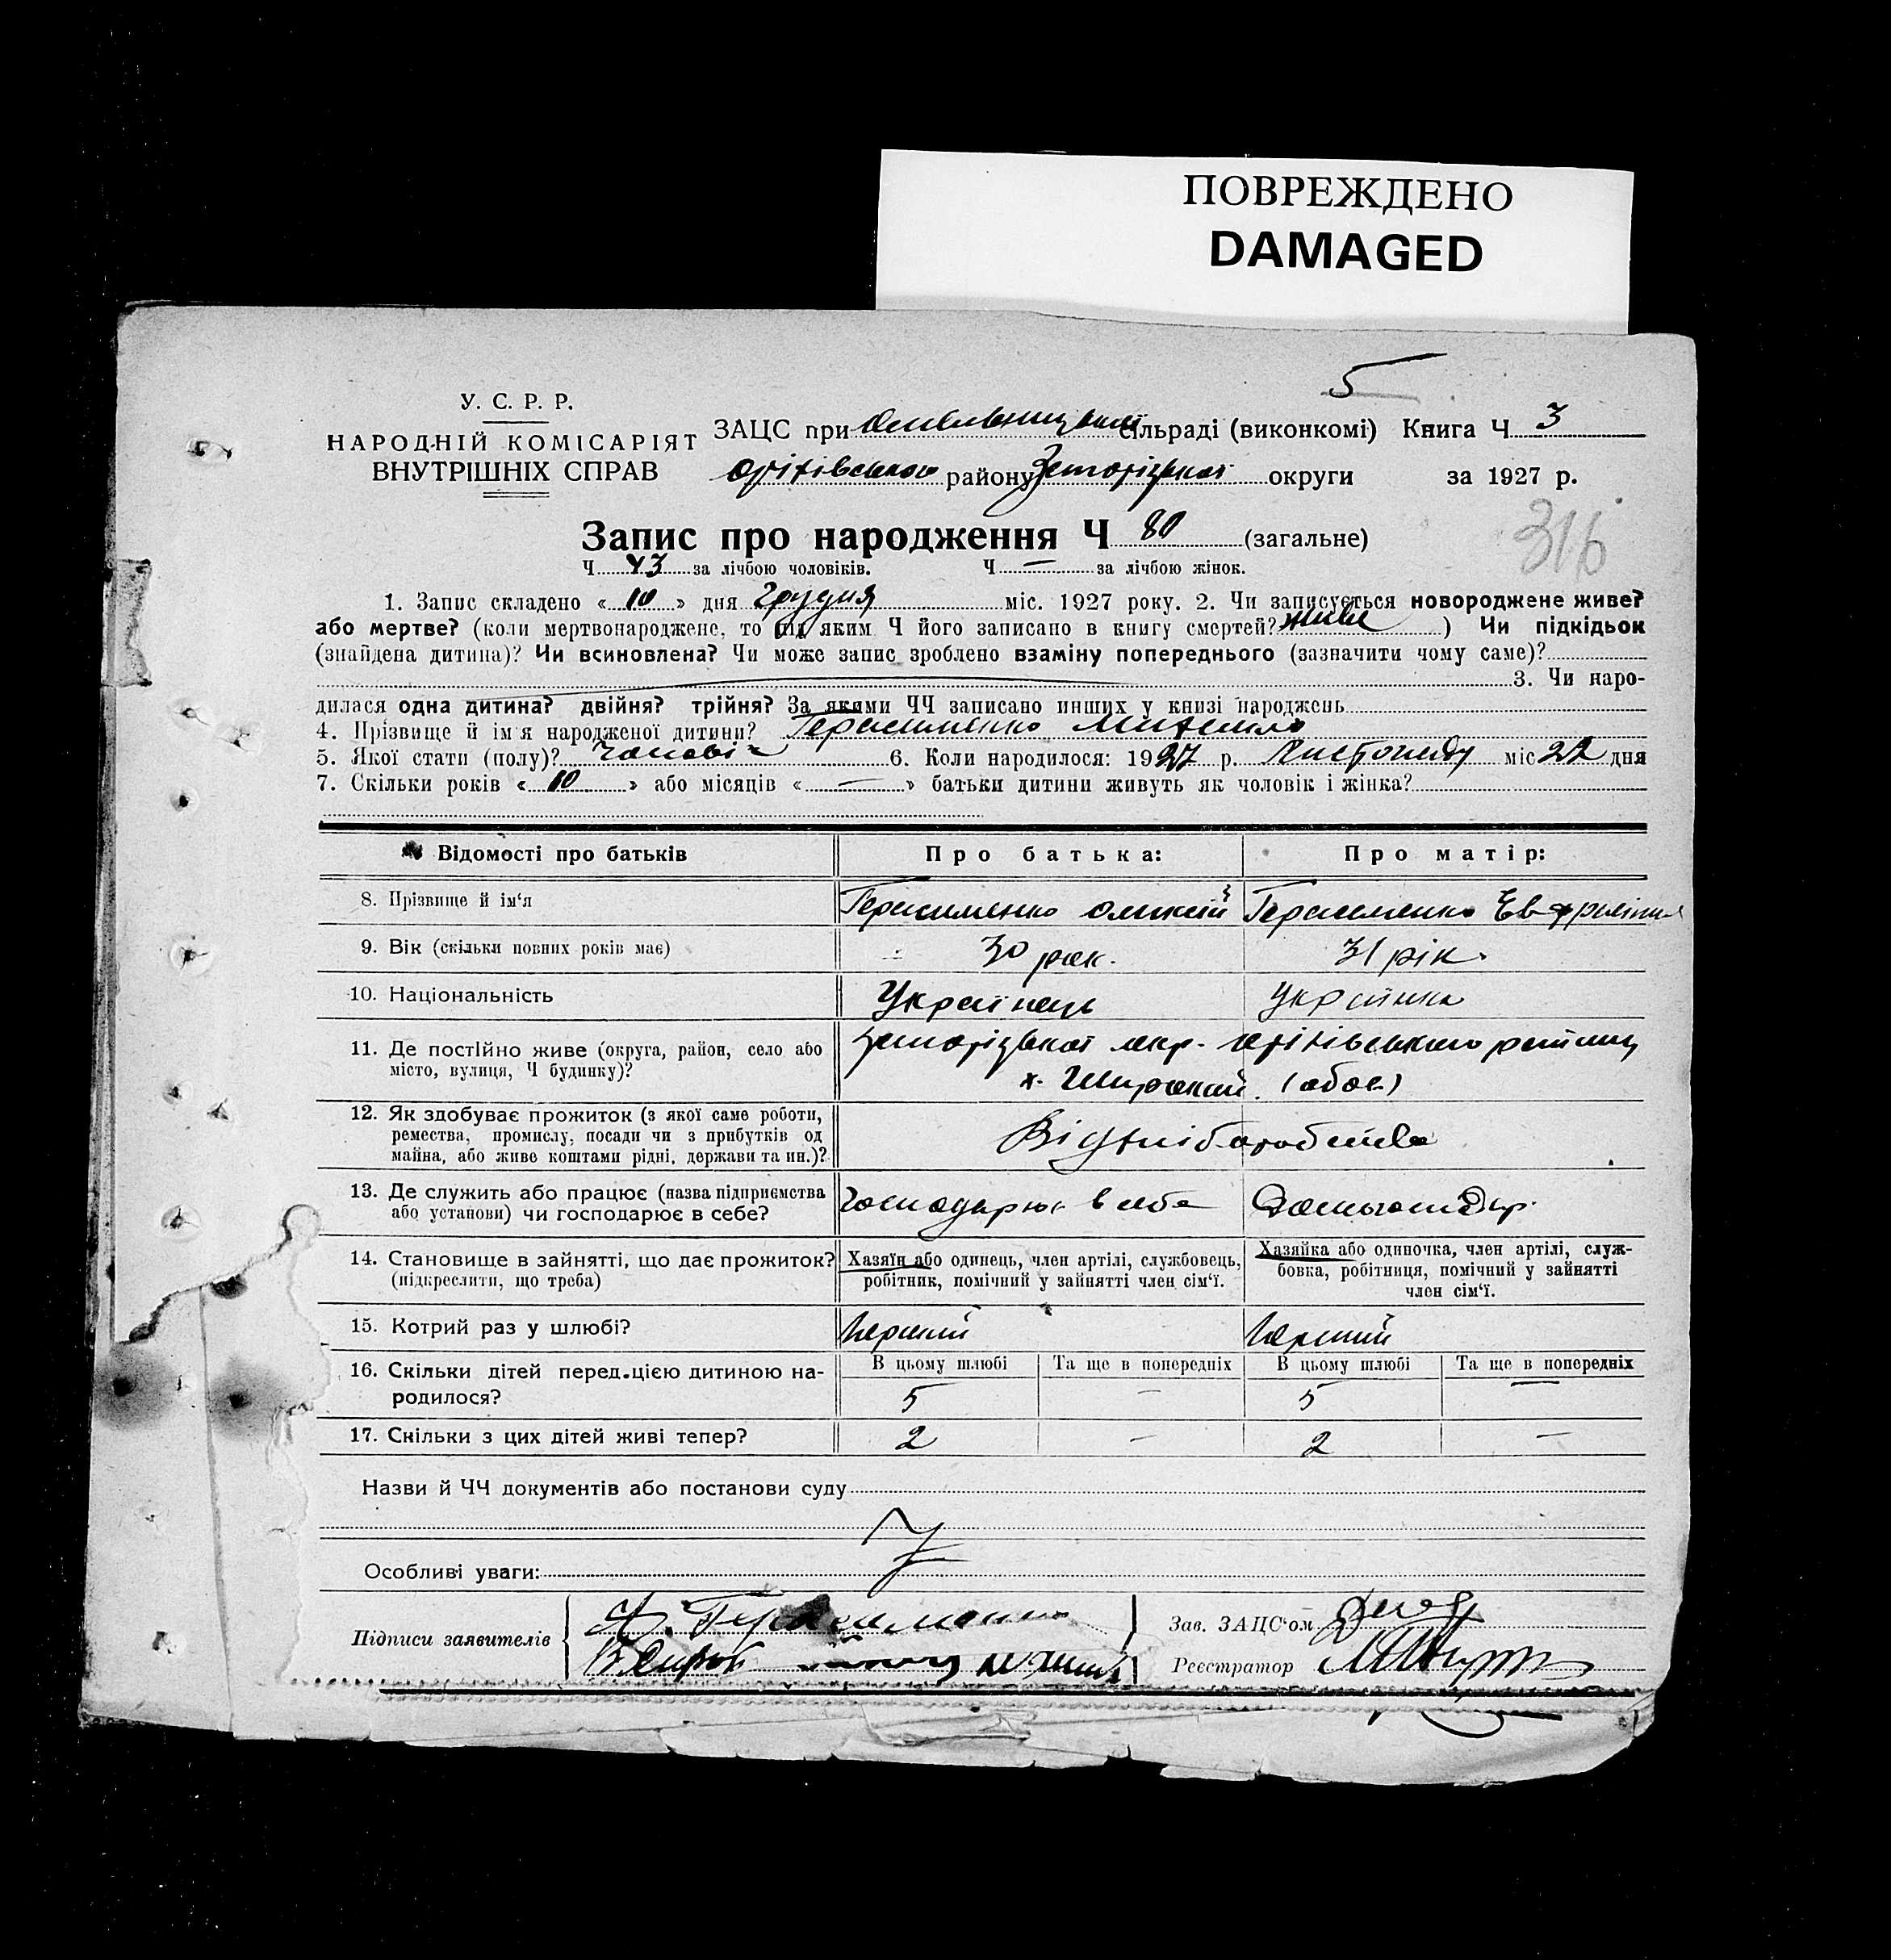 ПОВРЕЖДЕНО
DAMAGED
5
У. С. Р. Р.
НАРОДНІЙ КОМІСАРІЯТ
ВНУТРІШНІХ СПРАВ
ЗАЦС при сільраді (виконкомі) Книга Ч 3
Оріхівського району Запорізької округи за 1927 р.
316
Запис про народження Ч 80 (загальне)
Ч 43 за лічбою чоловіків. Ч — за лічбою жінок.
1. Запис складено « 10 » дня Грудня міс. 1927 року. 2. Чи записується новороджене живе?
або мертве? (коли мертвонароджене, то під яким Ч його записано в книгу смертей? живе ) Чи підкідьок
(знайдена дитина)? Чи всиновлена? Чи може запис зроблено взаміну попереднього (зазначити чому саме)?
3. Чи наро-
дилася одна дитина? двійня? трійня? За якими ЧЧ записано инших у книзі народжень
4. Прізвище й ім'я народженої дитини? Герасименко Михайло
5. Якої стати (полу)? Чоловік 6. Коли народилося: 1927 р. Листопаду міс 22 дня
7. Скільки років « 10 » або місяців « — » батьки дитини живуть як чоловік і жінка?
Відомості про батьків Про батька: Про матір:
8. Прізвище й ім'я Герасименко Олексій Герасименко
9. Вік (скільки повних років має) 30 рок. 31 рік
10. Національність Українець Українка
11. Де постійно живе (округа, район, село або
місто, вулиця, Ч будинку)?
Запорізької окр. Оріхівського району
х. Широкий (обоє)
12. Як здобуває прожиток (з якої саме роботи,
ремества, промислу, посади чи з прибутків од
майна, або живе коштами рідні, держави та ин.)?
Від хліборобства
13. Де служить або працює (назва підприємства
або установи) чи господарює в себе?
Господарює в себе
14. Становище в зайнятті, що дає прожиток?
(підкреслити, що треба)
Хазяїн або одинець, член артілі, службовець,
робітник, помічний у зайнятті член сім'ї.
Хазяйка або одиночка, член артілі, служ-
бовка, робітниця, помічний у зайнятті
член сім'ї.
15. Котрий раз у шлюбі? Перший Перший
16. Скільки дітей перед цією дитиною на-
родилося?
В цьому шлюбі Та ще в попередніх В цьому шлюбі Та ще в попередніх
5 — 5 —
17. Скільки з цих дітей живі тепер? 2 — 2 —
Назви й ЧЧ документів або постанови суду
Особливі уваги:
Підписи заявителів А. Герасименко
Зав. ЗАЦС'ом
Реєстратор